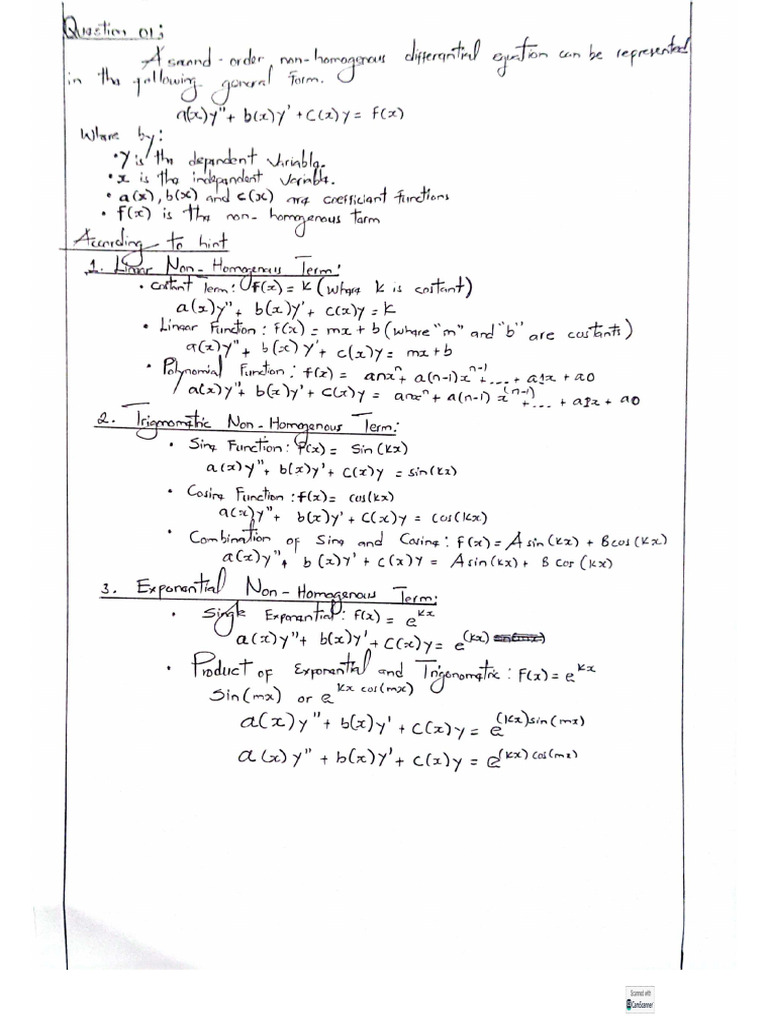 Question 01:
A second-order, non-homogenous differential equation can be represented
in the following general form.
a(x)y" + b(x)y' + c(x)y = f(x)
Where by:
• y is the dependent variable.
• x is the independent variable.
• a(x), b(x) and c(x) are coefficient functions
• f(x) is the non-homogenous term
According to hint
1. Linear Non-Homogenous Term:
• Costant Term: f(x) = k (where k is costant)
a(x)y" + b(x)y' + c(x)y = k
• Linear Function: f(x) = mx + b (where "m" and "b" are costants)
a(x)y" + b(x)y' + c(x)y = mx + b
• Polynomial Function: f(x) = anxⁿ + a(n-1)xⁿ⁻¹ + ... + a1x + a0
a(x)y" + b(x)y' + c(x)y = anxⁿ + a(n-1)x^(n-1) + ... + a1x + a0
2. Trignometric Non-Homogenous Term:
• Sine Function: f(x) = sin(kx)
a(x)y" + b(x)y' + c(x)y = sin(kx)
• Cosine Function: f(x) = cos(kx)
a(x)y" + b(x)y' + c(x)y = cos(kx)
• Combination of Sine and Cosine: f(x) = A sin(kx) + B cos(kx)
a(x)y" + b(x)y' + c(x)y = A sin(kx) + B cos(kx)
3. Exponential Non-Homogenous Term:
• Single Exponential: f(x) = e^kx
a(x)y" + b(x)y' + c(x)y = e^(kx)
• Product of Exponential and Trigonometric: f(x) = e^kx
sin(mx) or e^kx cos(mx)
a(x)y" + b(x)y' + c(x)y = e^(kx)sin(mx)
a(x)y" + b(x)y' + c(x)y = e^(kx) cos(mx)
Scanned with
CamScanner